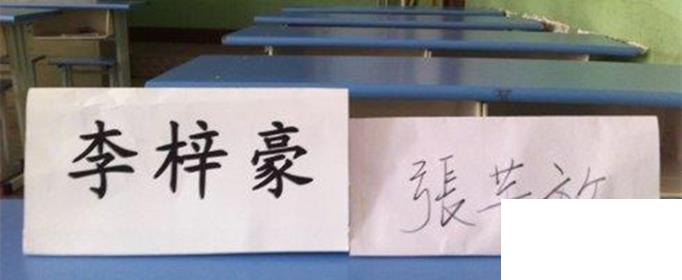 李梓豪
張